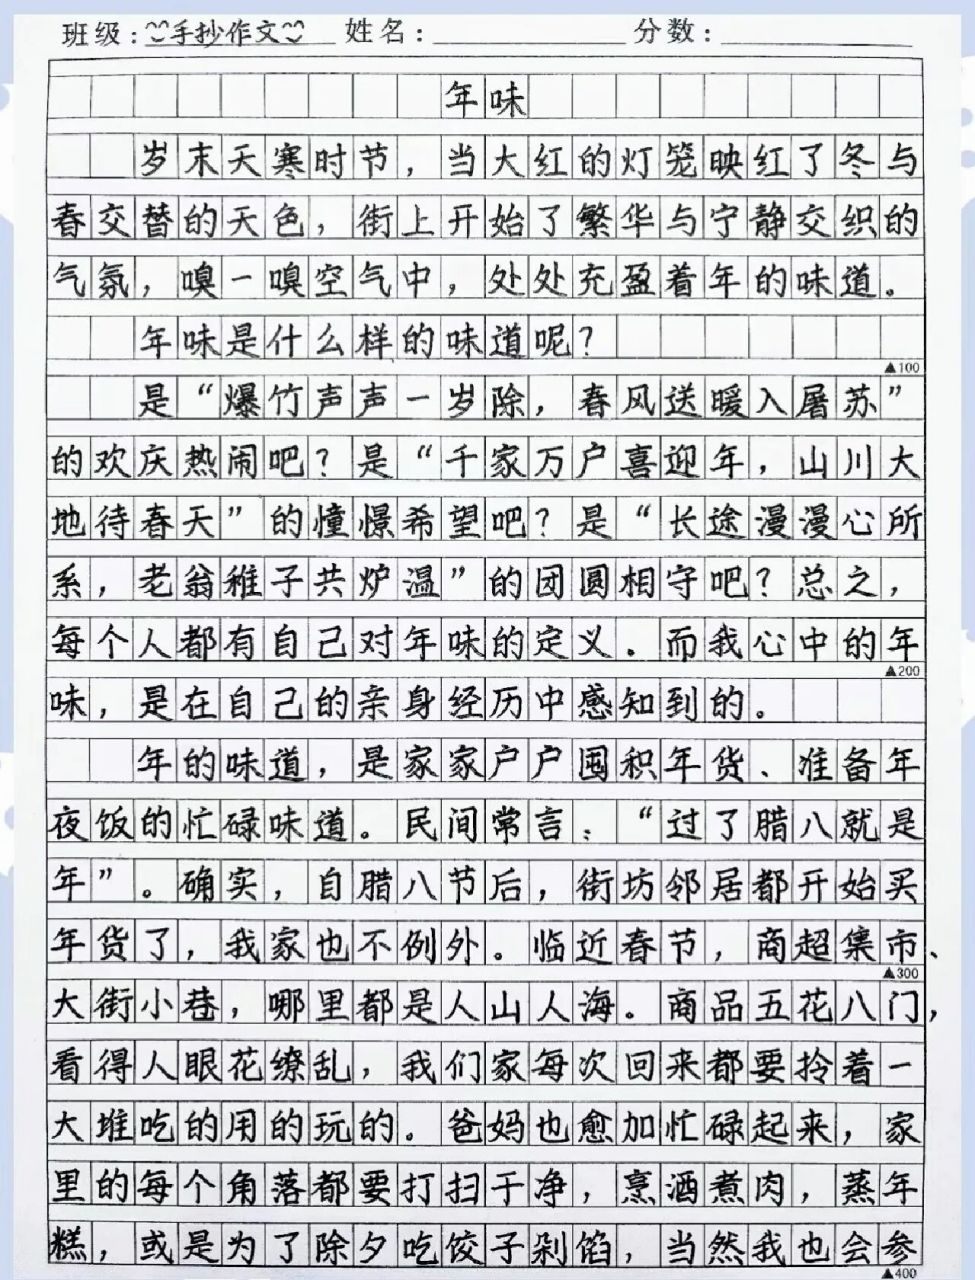 班级:手抄作文 姓名: 分数:
年味
岁末天寒时节，当大红的灯笼映红了冬与
春交替的天色，街上开始了繁华与宁静交织的
气氛，嗅一嗅空气中，处处充盈着年的味道。
年味是什么样的味道呢？
▲100
是“爆竹声声一岁除，春风送暖入屠苏”
的欢庆热闹吧？是“千家万户喜迎年，山川大
地待春天”的憧憬希望吧？是“长途漫漫心所
系，老翁稚子共炉温”的团圆相守吧？总之，
每个人都有自己对年味的定义。而我心中的年
▲200
味，是在自己的亲身经历中感知到的。
年的味道，是家家户户囤积年货、准备年
夜饭的忙碌味道。民间常言：“过了腊八就是
年”。确实，自腊八节后，街坊邻居都开始买
年货了，我家也不例外。临近春节，商超集市、
▲300
大街小巷，哪里都是人山人海。商品五花八门，
看得人眼花缭乱，我们家每次回来都要拎着一
大堆吃的用的玩的。爸妈也愈加忙碌起来，家
里的每个角落都要打扫干净，烹酒煮肉，蒸年
糕，或是为了除夕吃饺子剁馅，当然我也会参
▲400